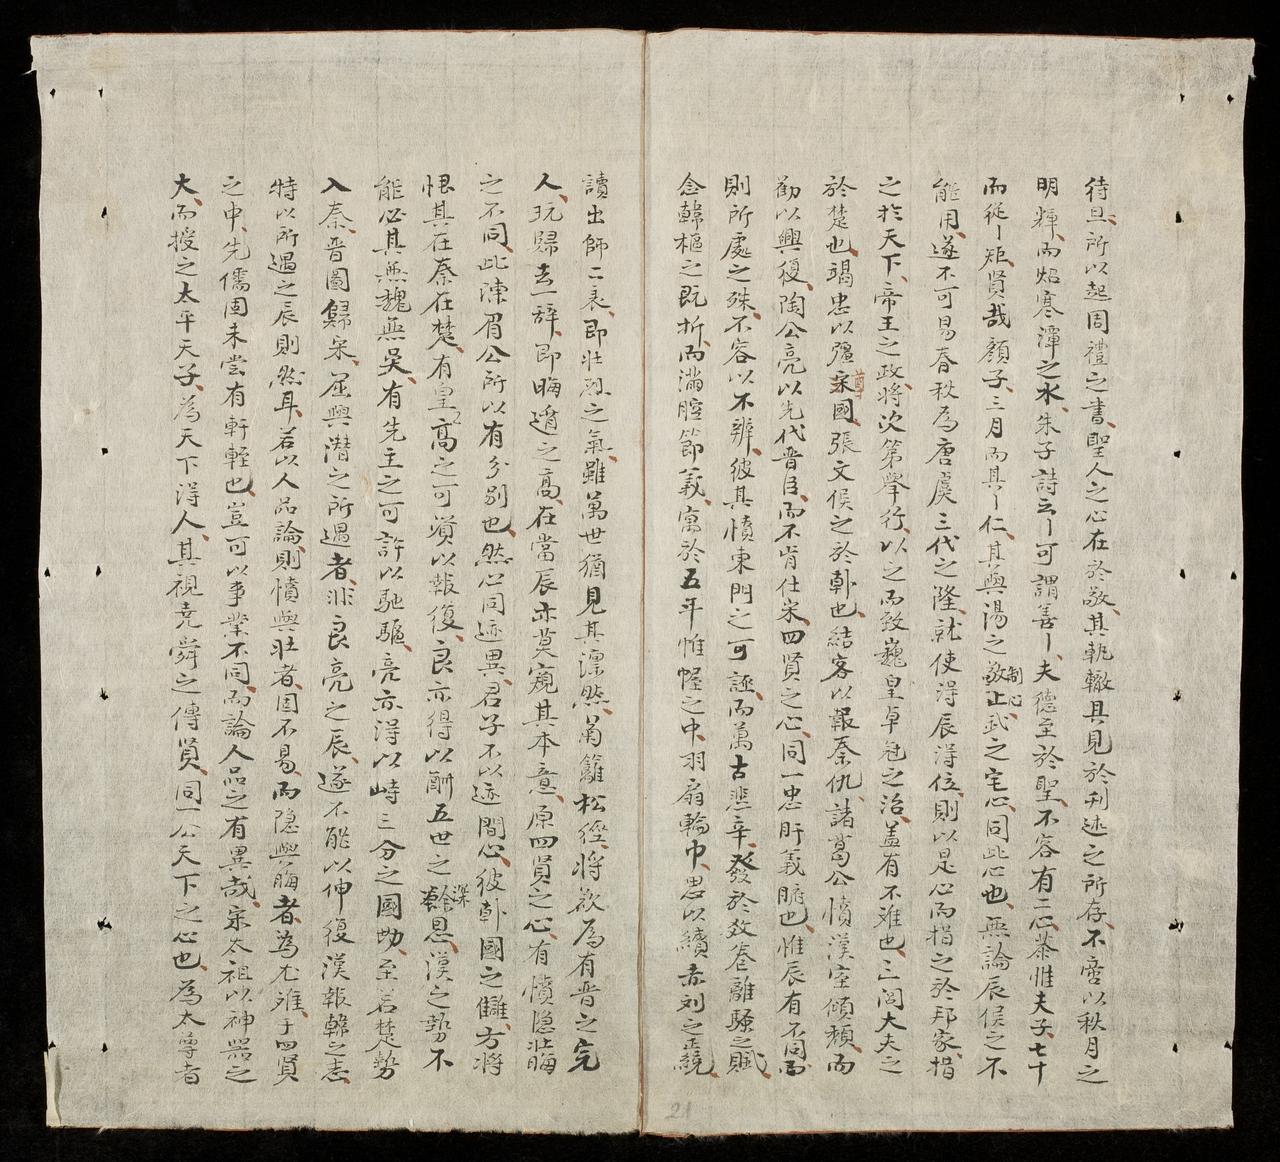 待旦所以起周禮之書聖人之心在於敬其軌轍具見於刊述之所存不啻以秋月之
明輝而炤寒潭之水朱子詩云〡可謂善〡夫德至於聖不容有二心恭惟夫子七十
而從〡矩賢哉顏子三月而其〡仁其與湯之制心敬止武之宅心同此心也無論辰侯之不
能用遂不可易春秋為唐虞三代之隆就使得辰得位則以是心而措之於邦家措
之於天下帝王之政將次第舉行以之而致巍皇卓冠之治盖有不难也三閭大夫之
於楚也竭忠以彊宗國張文侯之於韩也結客以報秦仇諸葛公憤漢室傾頹而
勸以興復陶公亮以先代晋臣而不肯仕宋四賢之心同一忠肝義膽也惟辰有不同而
則所處之殊不容以不辨彼其憤東門之可誣而萬古悲辛發於孜卷離騷之賦
念韓樞之既折而滿腔節義寓於五年帷幄之中羽扇輪巾思以續赤刘之正統
讀出師二表即壯烈之氣雖萬世猶見其凛然菊籬松徑將欲為有晋之完
人玩歸去一辞即晦遁之高在當辰亦莫窺其本意原四賢之心有憤隐壮晦
之不同此陳眉公所以有分别也然心同迹異君子不以迹間心彼韩國之讎方將
恨其在秦在楚有皇高之可資以報復良亦得以酬五世之深恩漢之勢不
能必其無魏無吳有先主之可許以馳驅亮亦得以峙三分之国势至若楚勢
入秦晋圖歸宋屈與潜之所遇者非良亮之辰遂不能以伸復漢報韓之志
特以所遇之辰則然耳若以人品論則憤與壮者固不易而隐與晦者為尤难于四賢
之中先儒固未嘗有軒輊也豈可以事業不同而論人品之有異哉宋太祖以神器之
大而授之太平天子為天下得人其視尭舜之傳賢同一公天下之心也為太尊者
21